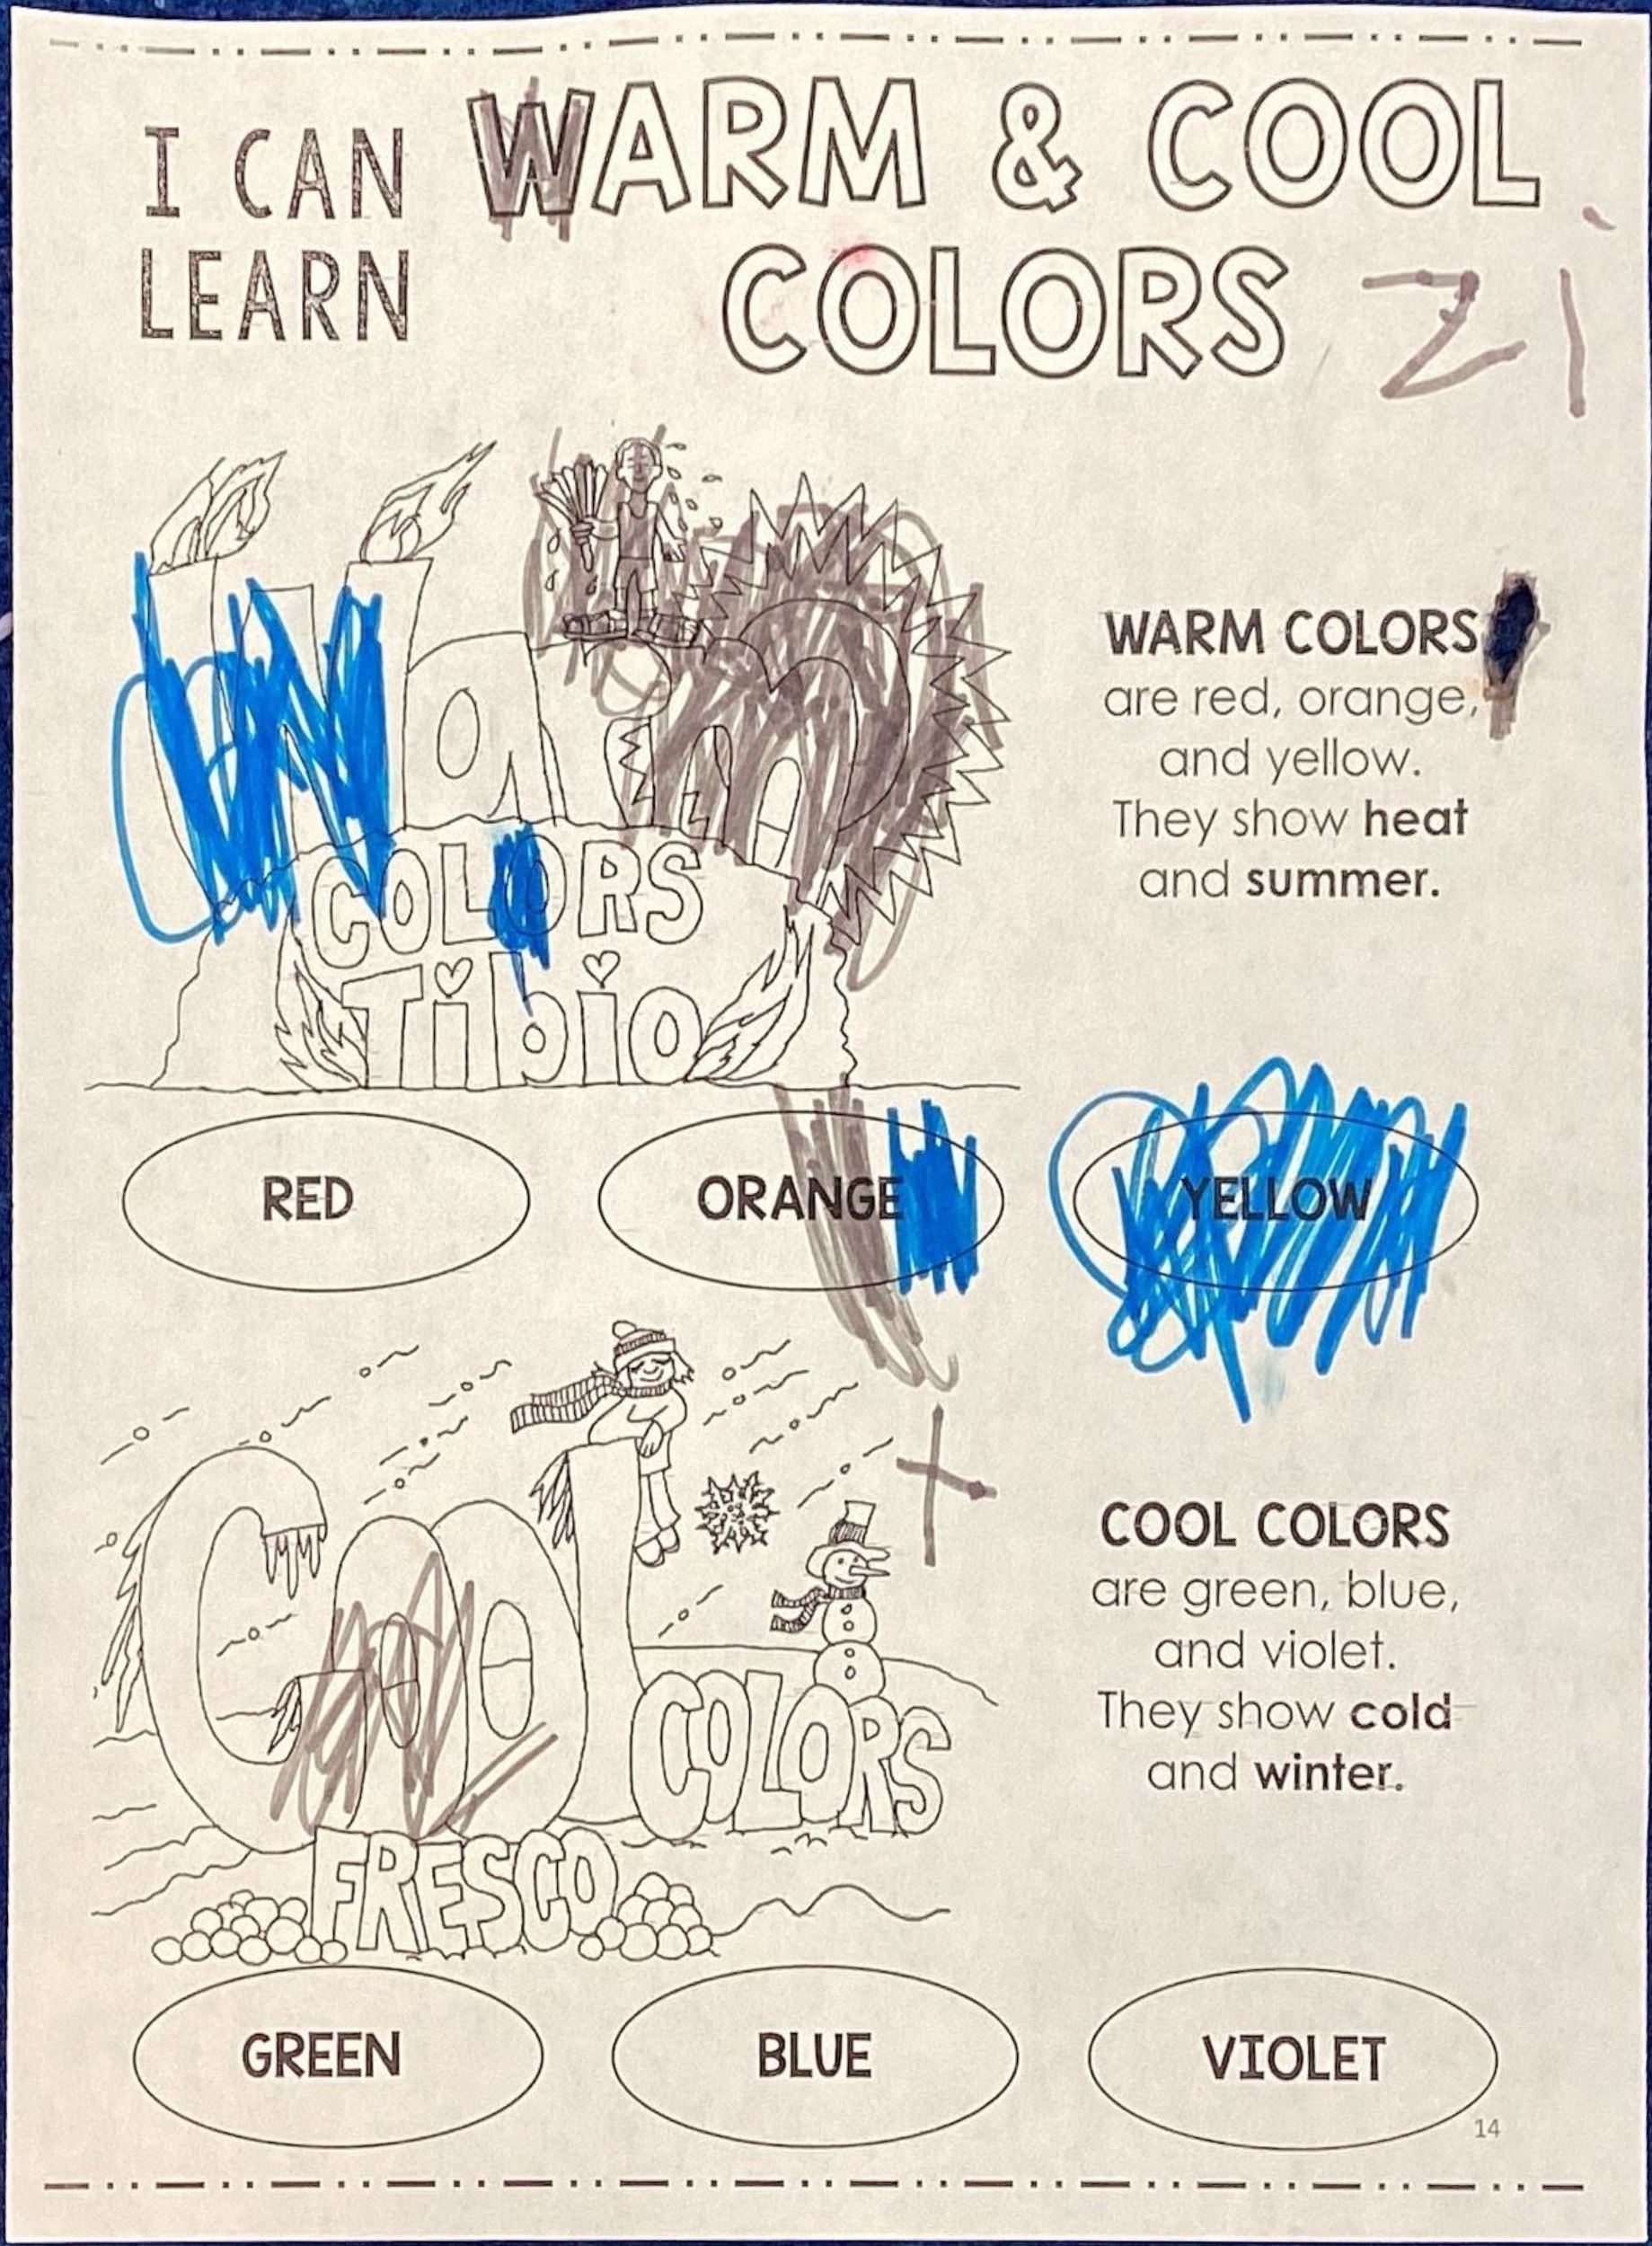 I CAN
LEARN
WARM & COOL
COLORS
Zi
Warm
COLORS
Tibio
WARM COLORS
are red, orange,
and yellow.
They show heat
and summer.
RED
ORANGE
YELLOW
Cool
COLORS
FRESCO
COOL COLORS
are green, blue,
and violet.
They show cold
and winter.
GREEN
BLUE
VIOLET
14